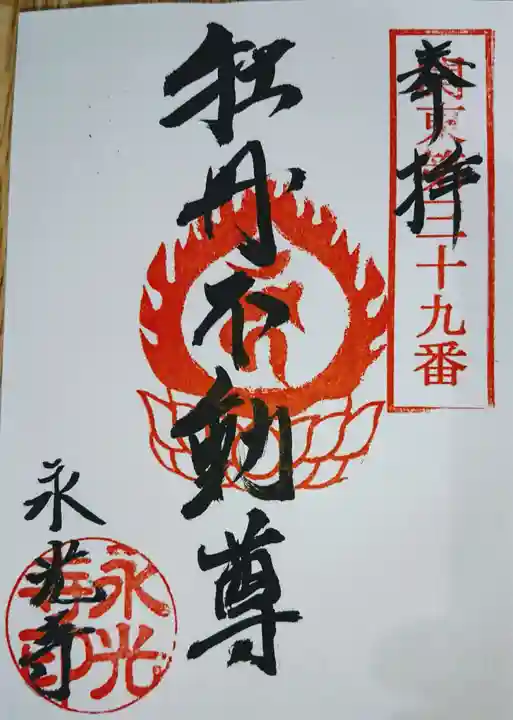 奉拝
関東第三十九番
牡丹不動尊
永光寺
永光寺印